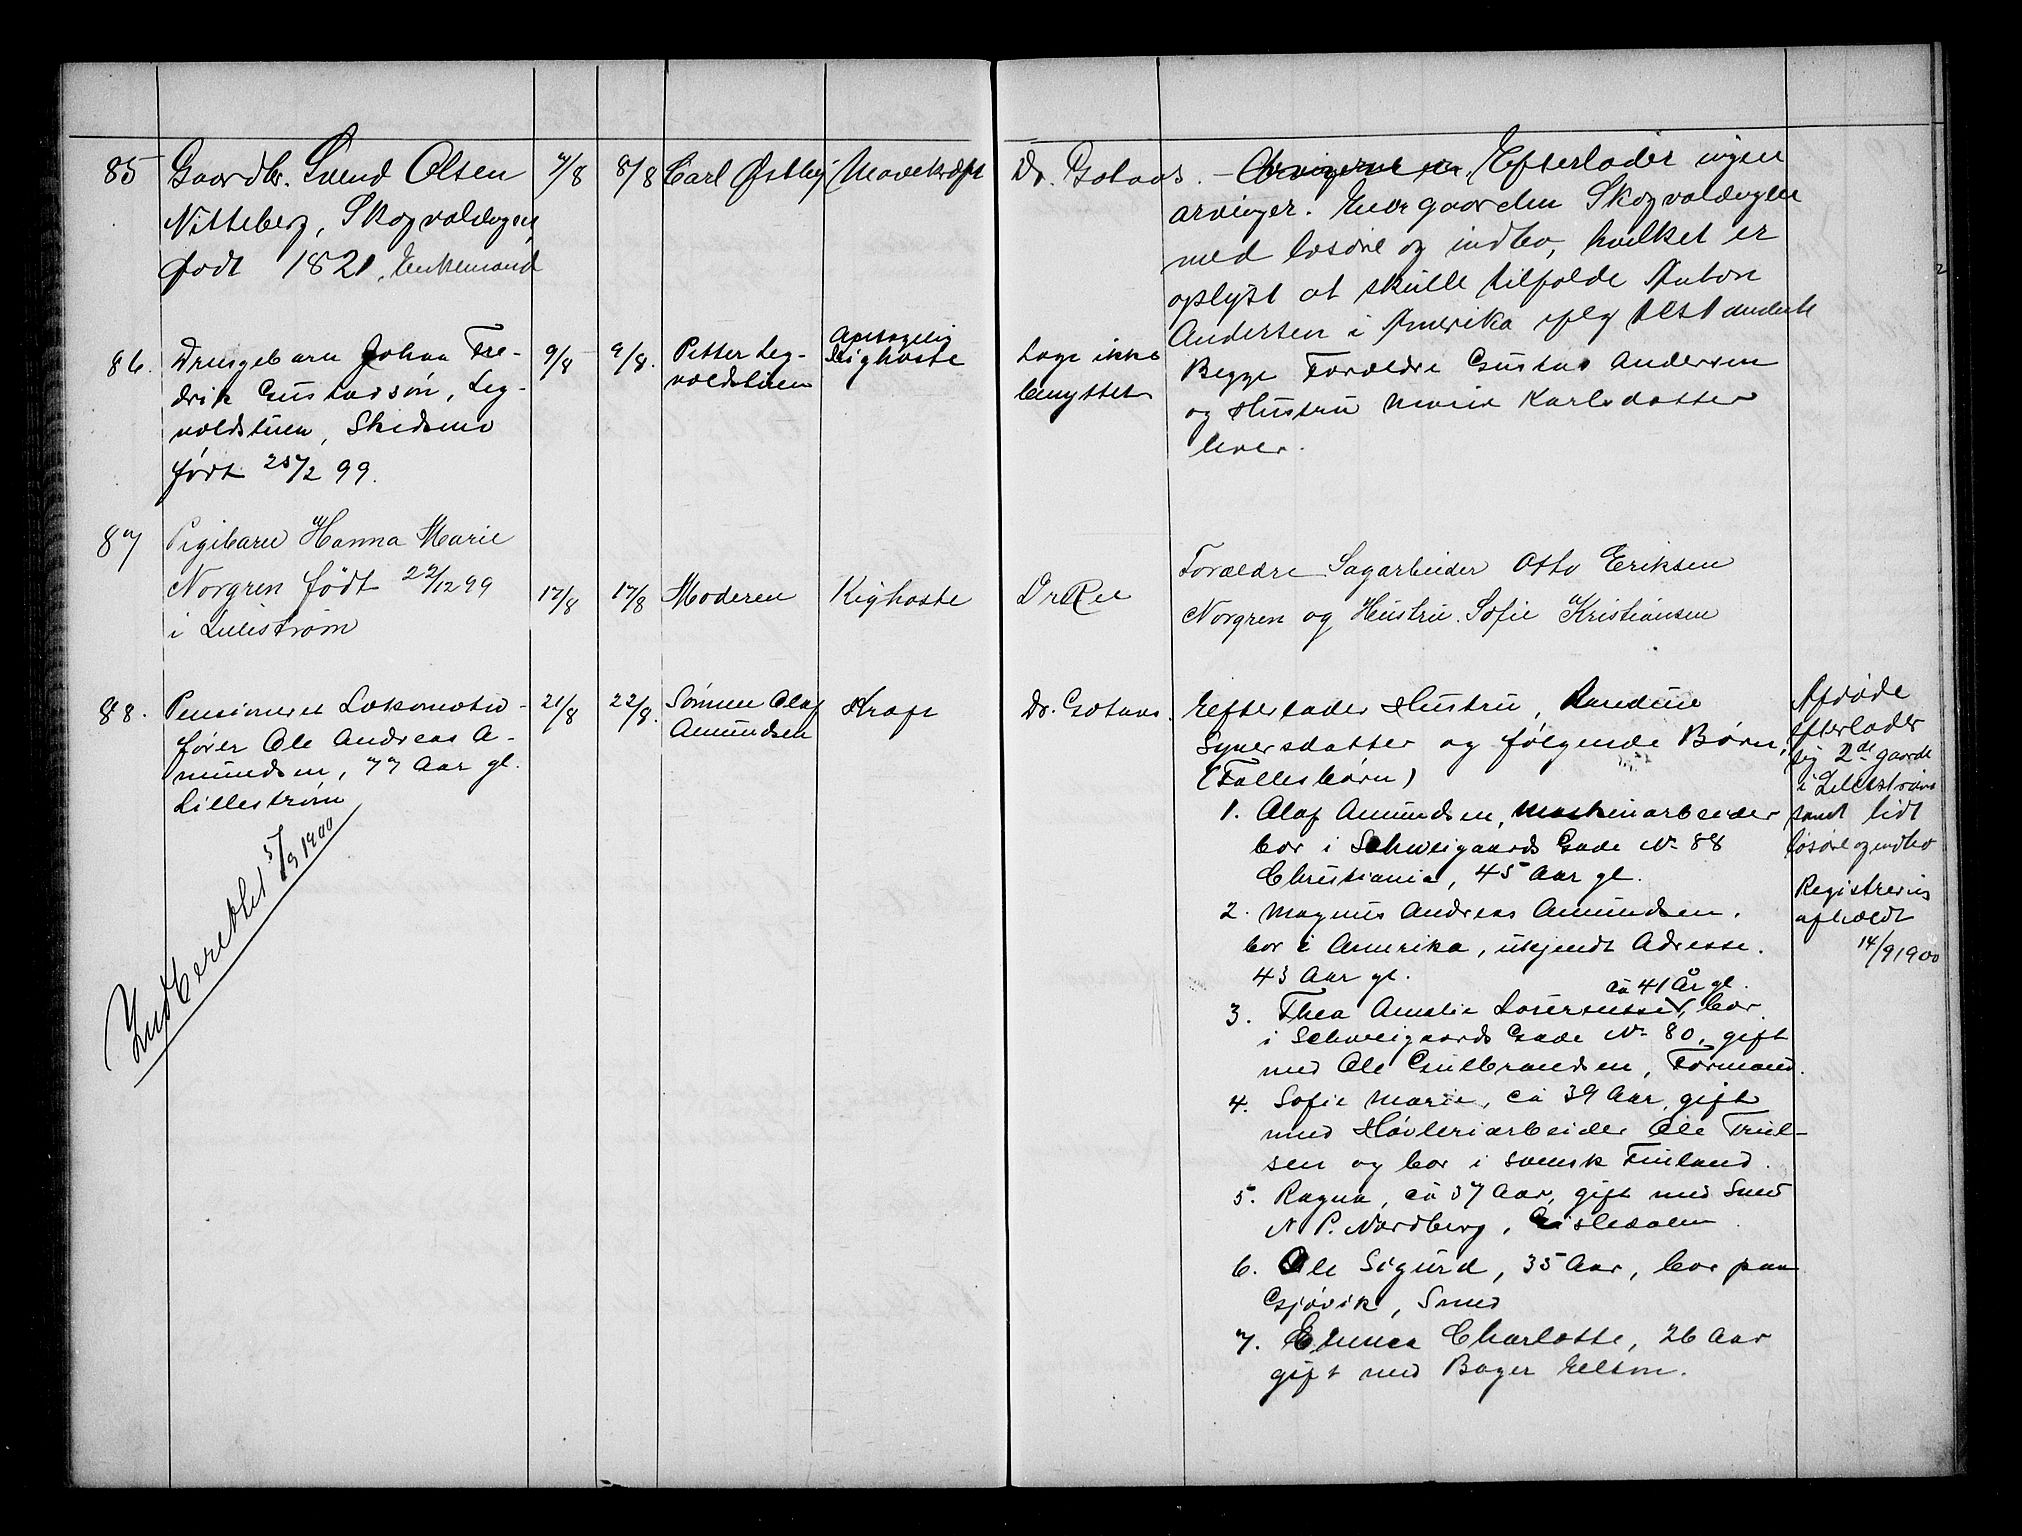 85 Gaardbr. Svend Olsen 7/8 8/8 Carl Østby Mavekræft Dr. Gotaas. Efterlader ingen
Nitteberg, Skogvoldengen, arvinger. Eier gaarden Skogvoldengen
født 1821, Enkemand med løsøre og indbo, hvilket er
oplyst at skulle tilfalde Anton
Andersen i Amerika ifølg testamente
86. Drengebarn Johan Fre- 9/8 9/8. Petter Leg- Antagelig Læge ikke Begge Forældre Gustav Andersen
drik Gustavsøn, Leg- voldstuen Kighoste benyttet og Hustru Marie Karlsdatter
voldstuen, Skedsmo lever.
født 25/2 99.
87 Pigebarn Hanna Marie Forældre Sagarbeider Otto Eriksen
Norgren født 22/12 99 17/8 17/8 Moderen Kighoste Dr Ree Norgren og Hustru Sofie Kristiansen
i Lillestrøm
88. Pensioneret Lokomotiv- 21/8 22/8. Sønnen Olaf Kræft Dr. Gotaas. Efterlader Hustru, Randine
fører Ole Andreas A- Amundsen Syversdatter og følgende Børn,
mundsen, 77 Aar gl. (Fællesbørn)
Lillestrøm
Indberettet 5/9 1900
1. Olaf Amundsen, Maskinarbeider
bor i Schweigaards Gade No 88
Christiania, 45 Aar gl.
2. Magnus Andreas Amundsen.
bor i Amerika, ukjendt Adresse.
43 Aar gl.
ca 41 År gl.
3. Thea Amalie, bor
i Schweigaards Gade No 80, gift
med Ole Gulbrandsen, Formand.
4. Sofie Marie, ca 39 Aar, gift
med Høvleriarbeider Ole Truel-
sen og bor i svensk Finland.
5. Ragna, ca 37 Aar, gift med Smed
N. P. Nordberg,
6. Ole Sigurd, 35 Aar, bor paa
Gjøvik, Smed
7. Emma Charlotte, 26 Aar
gift med Bager Eltson.
Afdøde
efterlader
sig 2de gaarde
i Lillestrøm
samt lidt
løsøre og indbo
Registrering
afholdt
14/9 1900